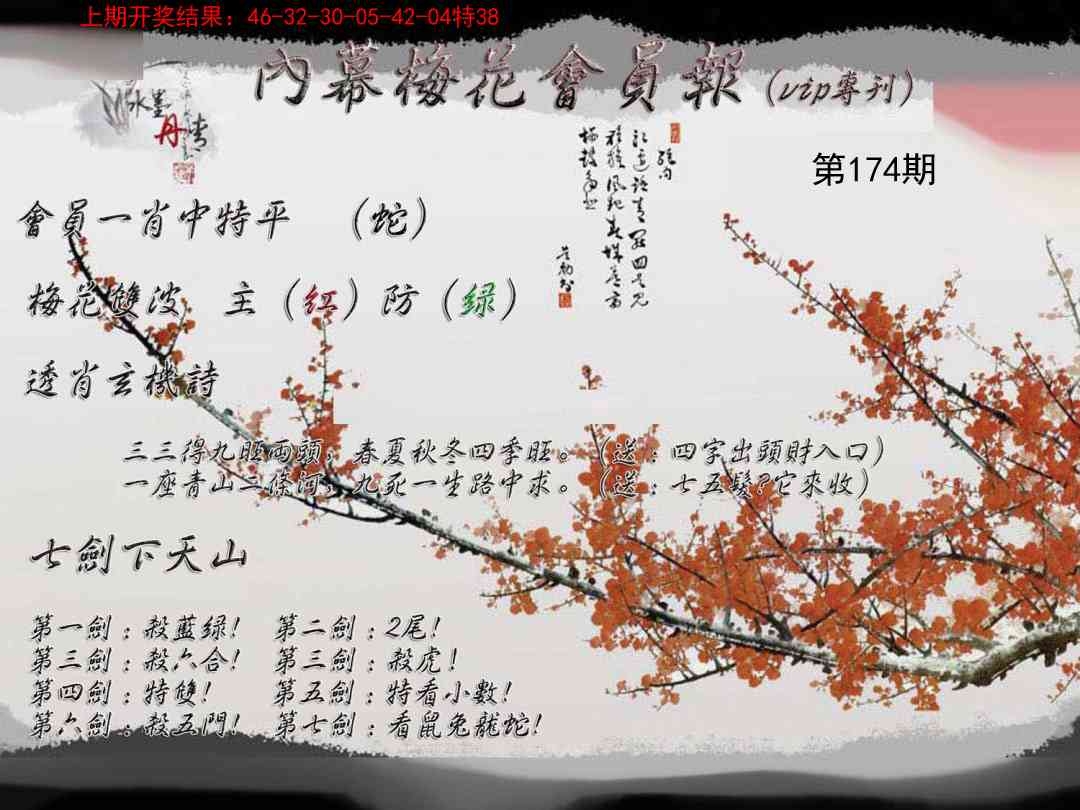 上期开奖结果：46-32-30-05-42-04特38
內幕梅花會員報（vip專刊）
水墨丹青
第174期
會員一肖中特平 （蛇）
梅花雙波 主（红）防（绿）
透肖玄機詩
三三得九旺両頭，春夏秋冬四季旺。（送：四字出頭財入口）
一座青山二條河，九死一生路中求。（送：七五髮?它來收）
七劍下天山
第一劍：殺藍绿！ 第二劍：2尾！
第三劍：殺六合！ 第三劍：殺虎！
第四劍：特雙！ 第五劍：特看小數！
第六劍：殺五門！ 第七劍：看鼠兔龍蛇！